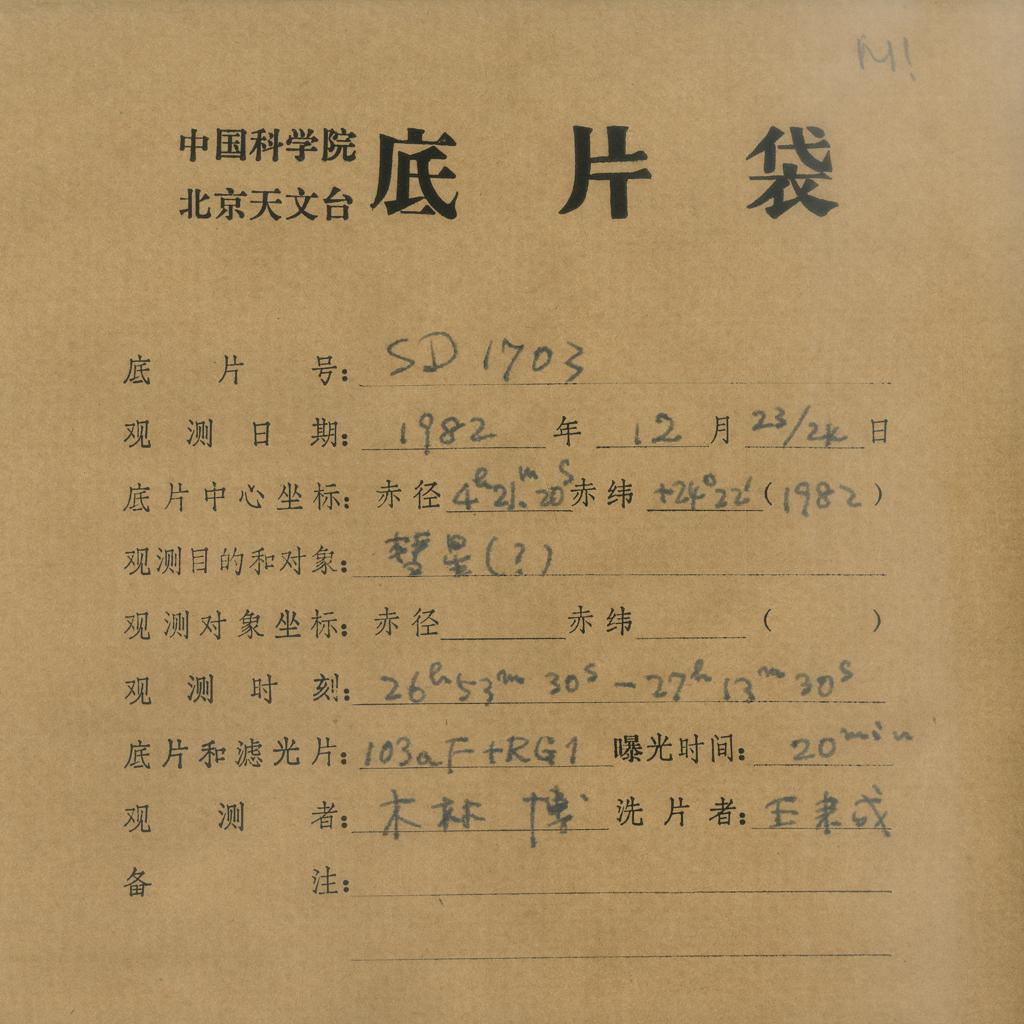 M!
中国科学院
北京天文台
底片袋
底片号: SD 1703
观测日期: 1982 年 12 月 23/24 日
底片中心坐标: 赤径 4h21m20s 赤纬 +24°22′ (1982)
观测目的和对象: 彗星(?)
观测对象坐标: 赤径 赤纬 ( )
观测时刻: 26h53m30s-27h13m30s
底片和滤光片: 103aF+RG1 曝光时间: 20min
观测者: 木林 博 洗片者: 王
备注: